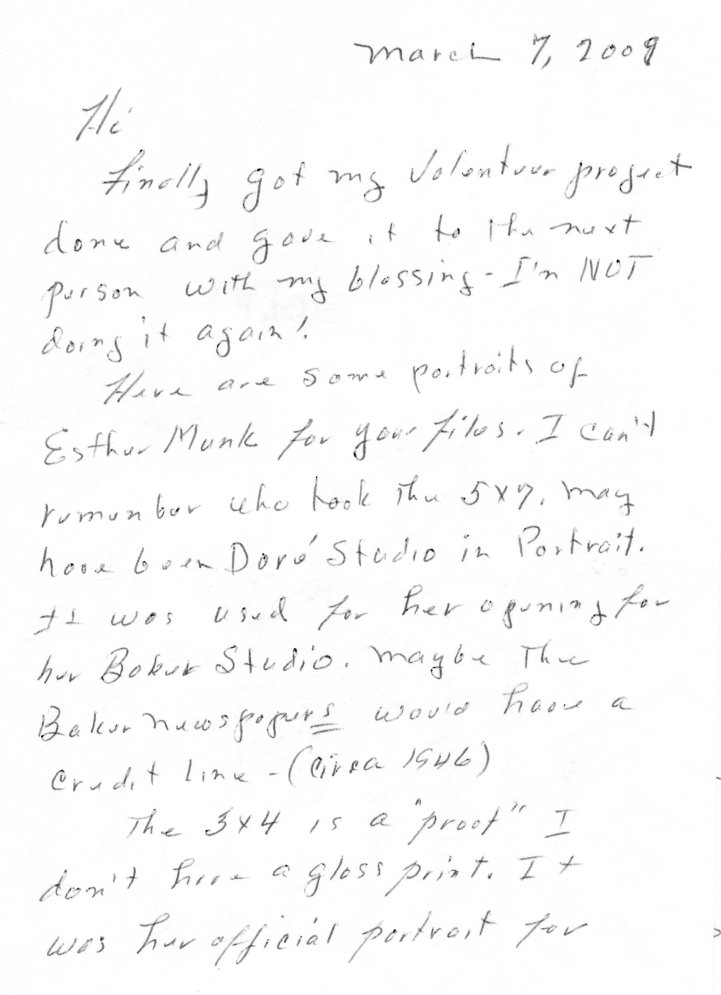 March 7, 2009
Hi
Finally got my Volenteer project
done and gave it to the next
person with my blessing - I'm NOT
doing it again!
Here are some portraits of
Esther Munk for your files. I can't
remember who took the 5x7. May
have been Doré Studio in Portrait.
It was used for her opening for
her Baker Studio. Maybe the
Baker newspapers would have a
credit line - (Circa 1946)
The 3x4 is a "proof" I
don't have a gloss print. It
was her official portrait for